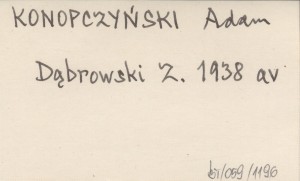 KONOPCZYŃSKI Adam
Dąbrowski Z. 1938 av
/059/1196